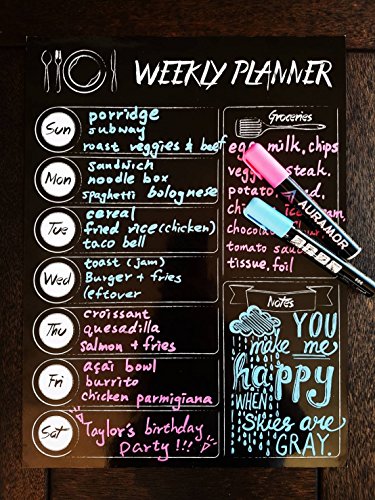 WEEKLY PLANNER
Sun
porridge
subway
roast veggies & beef
Mon
sandwich
noodle box
spaghetti bolognese
Tue
cereal
fried rice (chicken)
taco bell
Wed
toast (jam)
Burger + fries
leftover
Thu
croissant
quesadilla
salmon + fries
Fri
açaí bowl
burrito
chicken parmigiana
Sat
Taylor's birthday
party!!!
Groceries
egg, milk, chips
steak.
tomato sauce
tissue, foil
AURAMOR
Notes
YOU
make me
happy
WHEN
SKIES ARE
GRAY.